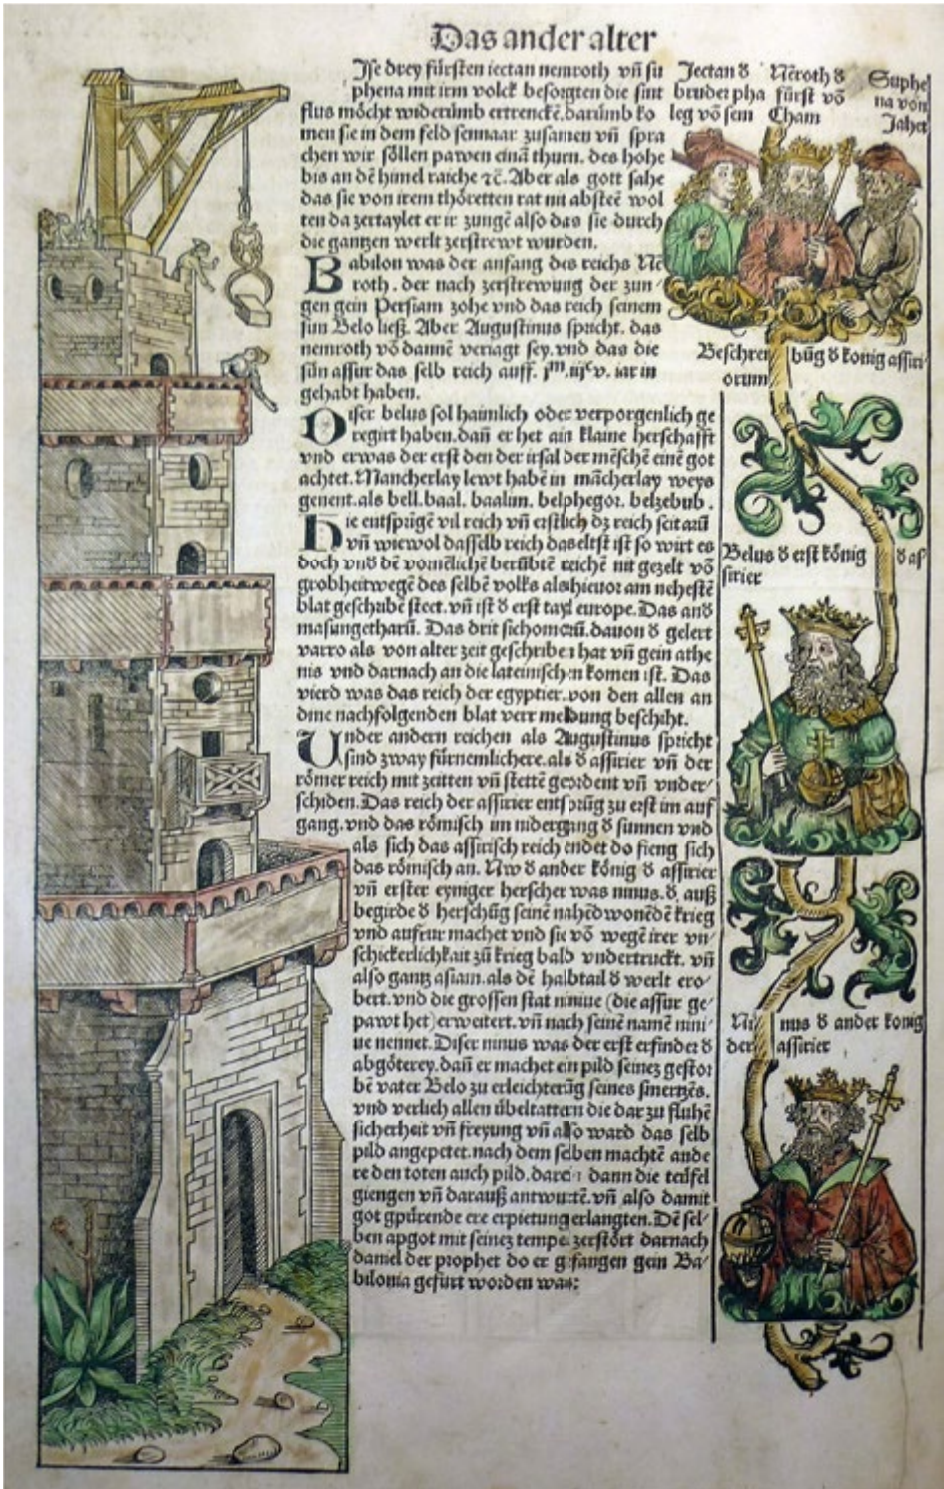 Das ander alter
Jse drey fürsten iectan nemroth vñ su
phena mit irm volck besorgten die sint
flus möcht widerümb ertrenckē. darümb ko
men sie in dem feld sennaar zusamen vñ spra
chen wir söllen pawen einā thurn. des hohe
bis an dē himel raiche ⁊c̄. Aber als gott sahe
das sie von irem thöretten rat nit absteē wol
ten da zertaylet er ir zungē also das sie durch
die gantzen werlt zerstrewt wurden.
Babilon was der anfang des reichs Nē
roth. der nach zerstrewung der zun
gen gein Persiam zohe vnd das reich seinem
sun Belo ließ. Aber Augustinus spricht. das
nemroth vō dannē veriagt sey. vnd das die
sün assur das selb reich auff. jᵐ.iijᶜ.v. iar in
gehabt haben.
Diser belus sol haimlich oder verporgenlich ge
regirt haben. dañ er het ain klaine herschafft
vnd er was der erst den der irsal der mēschē einē got
achtet. Mancherlay lewt habē in mācherlay weys
genent. als bell. baal. baalim. belphegor. belzebub.
Hie entsprigē vil reich vñ erstlich dz reich scitarū
vñ wiewol dasselb reich das eltst ist so wirt es
doch vnd dē vornēlichē berübtē reichē nit gezelt vō
grobheit wegē des selbē volks als hieuor am nehestē
blat geschribē steet. vñ ist ð erst tayl europe. Das anð
masungetharū. Das drit sichomorū. dauon ð gelert
varro als von alter zeit geschriben hat vñ gein athe
nis vnd darnach an die lateinischen komen ist. Das
vierd was das reich der egyptier. von den allen an
dme nachfolgenden blat vermeldung beschiht.
Under andern reichen als Augustinus spricht
sind zway fürnemlichere. als ð assirier vñ der
römer reich mit zeitten vñ stettē geordent vñ vnder
schiden. Das reich der assirier entsprüg zu erst im auf
gang. vnd das römisch im nidergang ð sunnen vnd
als sich das assirisch reich endet do fieng sich
das römisch an. Nw ð ander könig ð assirier
vñ erster eyniger herscher was ninus. ð auß
begirde ð herschūg seinē nahēdwonēdē krieg
vnd aufrur machet vnd sie vō wegē irer vn
schickerlichkait zū krieg bald vndertruckt. vñ
also gantz asiam. als dē halbtail ð werlt ero
bert. vnd die grossen stat niniue (die assur ge
pawt het) erweitert. vñ nach seinē namē nini
ue nennet. Diser ninus was der erst erfinder ð
abgöterey. dañ er machet ein pild seinez gestor
bē vater Belo zu erleichterūg seines smertzēs.
vnd verlich allen übeltattern die dar zu fluhē
sicherheit vñ freyung vñ also ward das selb
pild angepetet. nach dem selben machtē ande
re den toten auch pild. darein dann die teüfel
giengen vñ darauß antwurtē. vñ also damit
got gpürende ere erpietung erlangten. Dē sel
ben apgot mit seinez tempel zerstört darnach
daniel der prophet do er gefangen gein Ba
bilonia gefürt worden was:
Jectan ð
bruder pha
leg vō sem
Nēroth ð
fürst vō
Cham
Suphe
na von
Japhet
Beschreybūg ð könig assiri
orum
Belus ð erst könig ð as
sirier
Ninus ð ander konig
der assirier